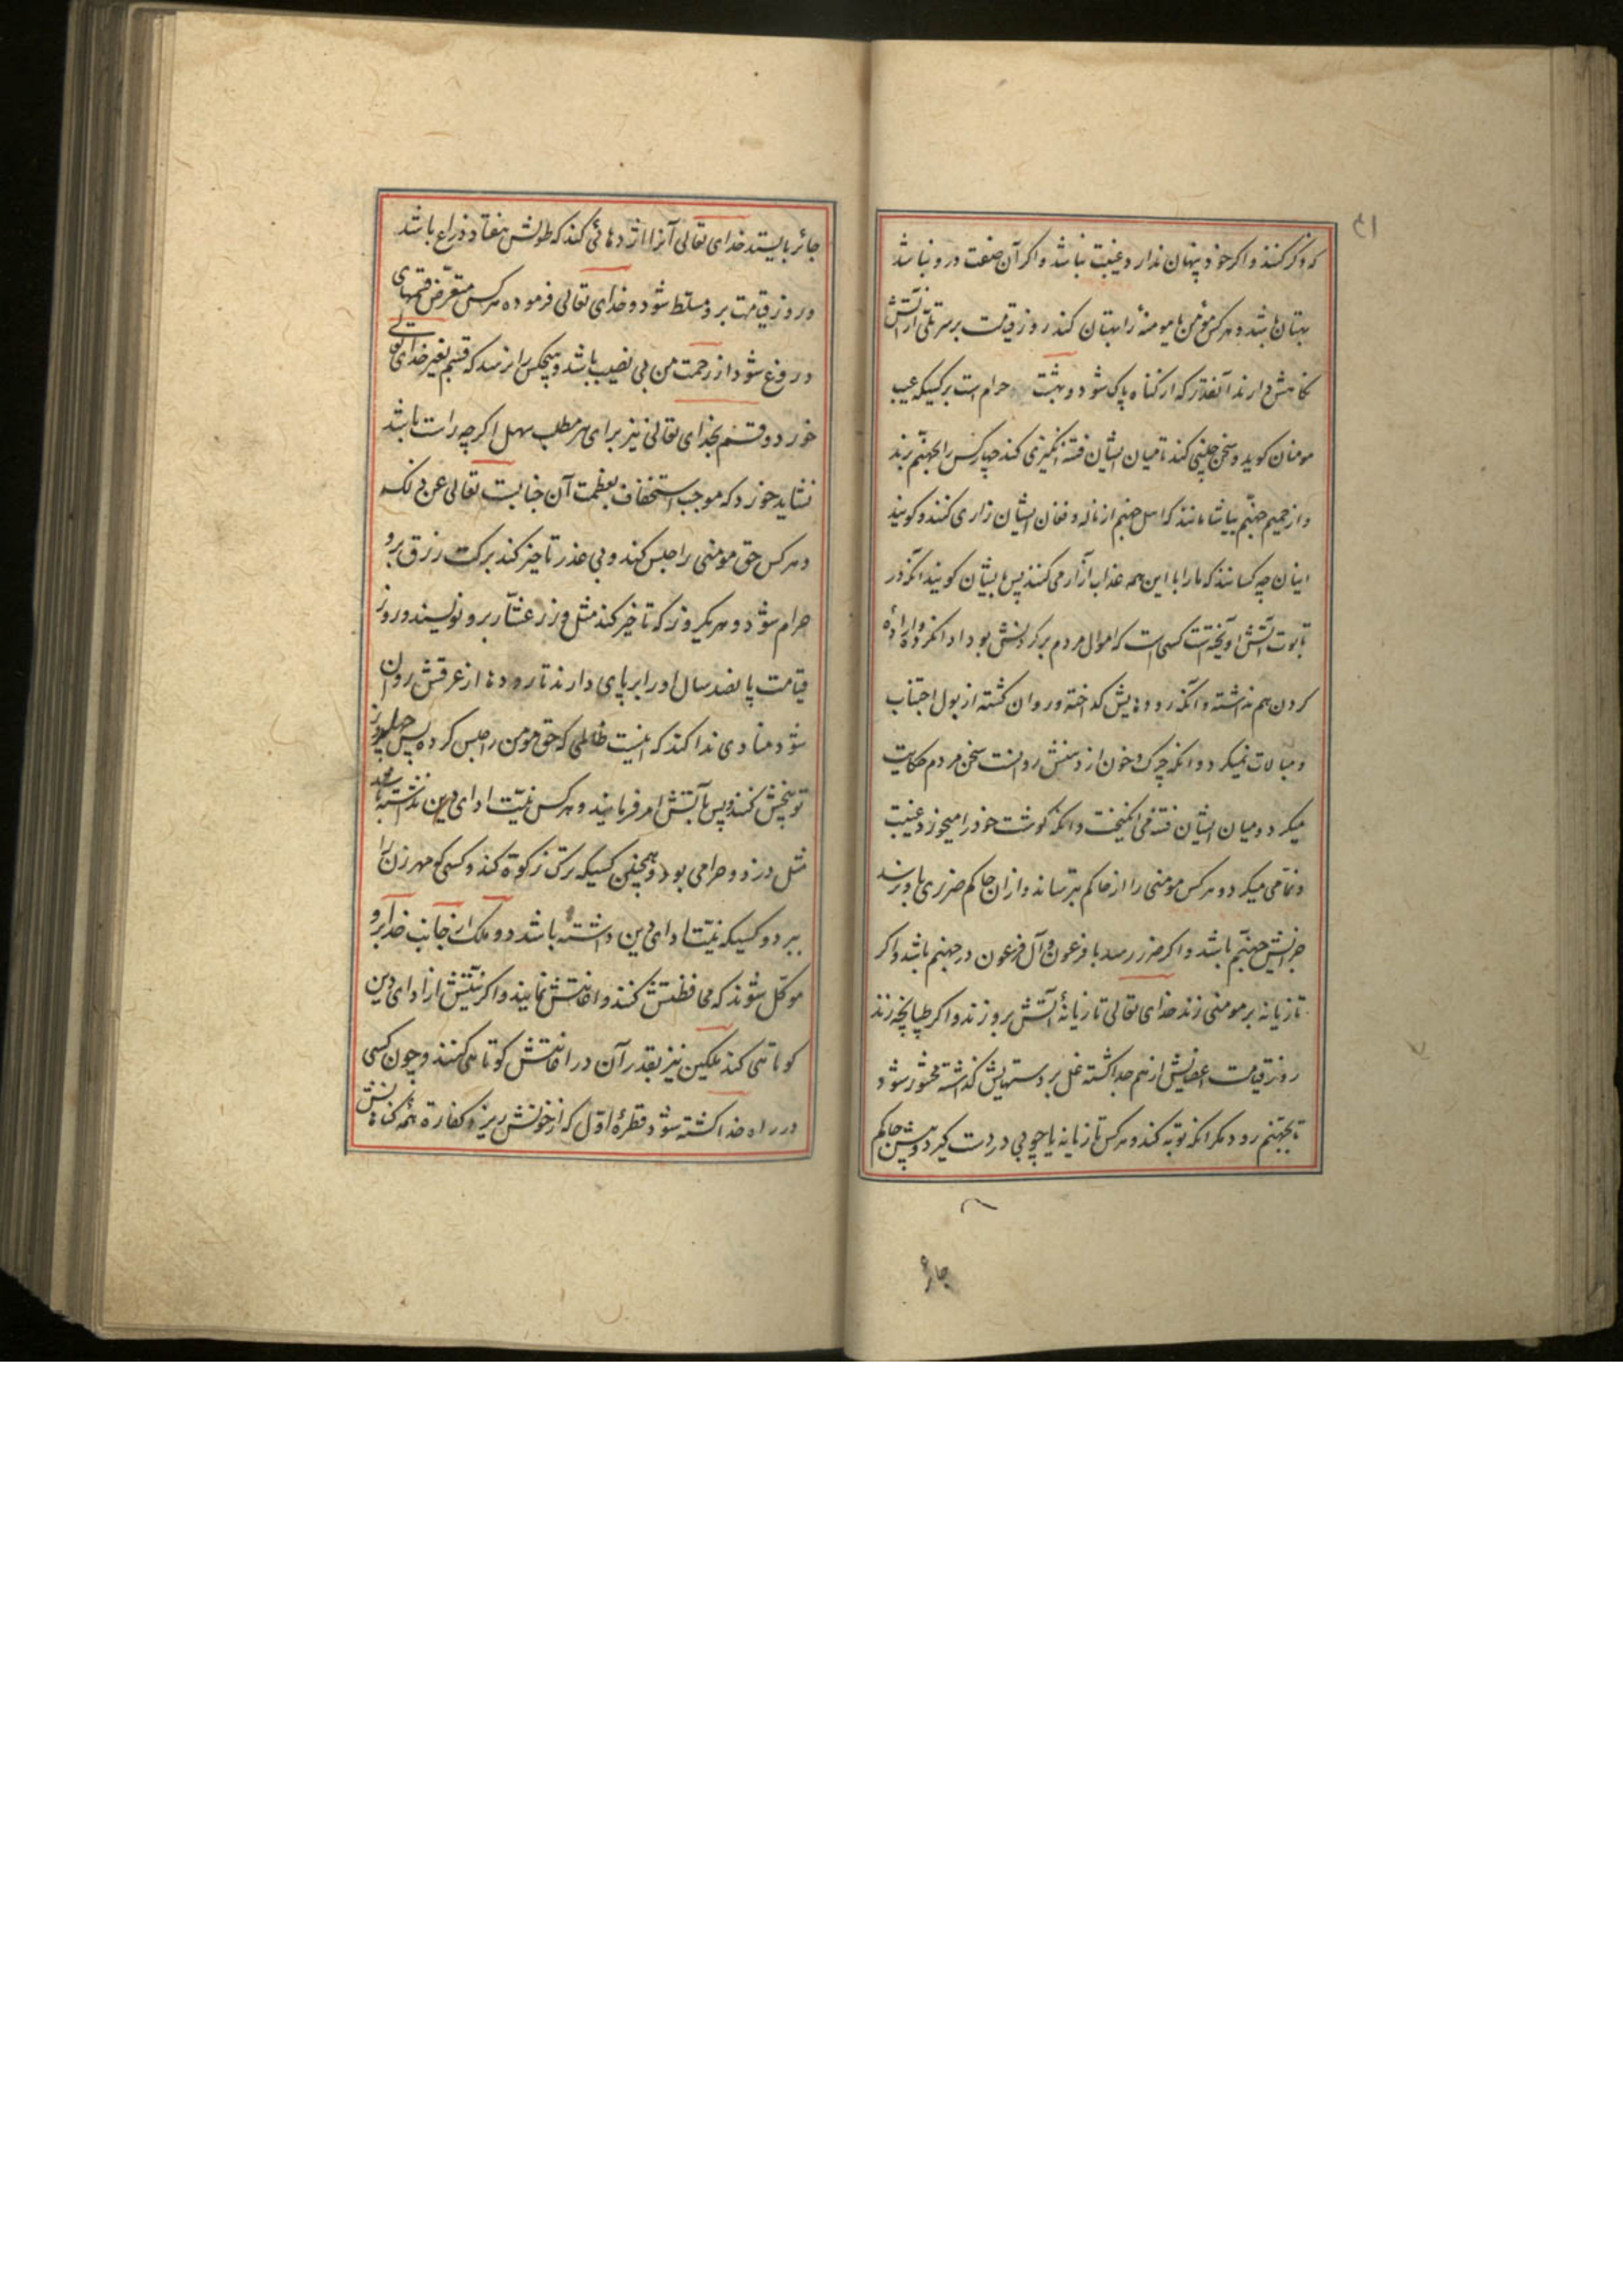 که ذکر کنند و اگر خود پنهان ندارد غیبت نباشد و اگر آن صفت درو نباشد
بهتان باشد و هر کس مؤمن یا مومنهٔ را بهتان کند روز قیامت بر سر تلی از آتش
نگاهش دارند آنقدر که از گناه پاک شود و بهشت حرام است بر کسیکه عیب
مومنان گوید و سخن چینی کند تا میان ایشان فتنه انگیزی کند چهار کس را بجهنم برند
و از حمیم جهنم بیاشامانند که اهل جهنم از ناله و فغان ایشان زاری کنند و گویند
اینان چه کسانند که ما را با این همه عذاب آزار می کنند پس بایشان گویند آنکه در
تابوت آتش آویخته است کسی است که اموال مردم بر گردنش بود ادا نکرده و ارادهٔ
کردن هم نداشته و آنکه روده‌هایش گداخته و روان گشته از بول اجتناب
و مبالات نمیکرد و آنکه چرک و خون از دهنش روانست سخن مردم حکایت
میکرد و میان ایشان فتنه می انگیخت و آنکه گوشت خود را میخورد غیبت
و نمامی میکرد و هر کس مومنی را از حاکم بترساند و از ان حاکم ضرری باو نرسد
جزایش جهنم باشد و اگر ضرر رسد با فرعون و آل فرعون در جهنم باشد و اگر
تازیانه بر مومنی زند خدای تعالی تازیانهٔ آتش برو زند و اگر طپانچه زند
روز قیامت اعضایش از هم جدا گشته غل بر دستهایش گذاشته محشور شود
تا بجهنم رود مگر آنکه توبه کند و هر کس تازیانه یا چوبی در دست گیرد و پیش حاکم
جائر
جائر بایستد خدای تعالی آنرا اژدهائی کند که طولش هفتاد ذراع باشد
و روز قیامت برو مسلط شود و خدای تعالی فرموده هر کس متعرض قسمهای
دروغ شود از رحمت من بی نصیب باشد و هیچکس را نرسد که قسم بغیر خدای تعالی
خورد و قسم بخدای تعالی نیز برای هر مطلب سهل اگر چه راست باشد
نشاید خورد که موجب استخفاف بعظمت آن جنابست تعالی عن ذلک
و هر کس حق مومنی را حبس کند و بی عذر تاخیر کند برکت رزق برو
حرام شود و هر یکروز که تاخیر کند مثل وزر عشار برو نویسند و روز
قیامت پانصد سال او را بر پای دارند تا رودها از عرقش روان
شود منادی ندا کند که اینست ظالمی که حق مومن را حبس کرده پس چهل روز
توبیخش کنند و پس بآتش امر فرمایند و هر کس نیت ادای دین نداشته باشد
مثل دزد و حرامی بود و همچنین کسیکه ترک زکوة کند و کسی که مهر زن را
ببرد و کسیکه نیت ادای دین داشته باشد دو ملک از جانب خدا برو
موکل شوند که محافظتش کنند و اعانتش نمایند و اگر نیتش از ادای دین
کوتاهی کند ملکین نیز بقدر آن در اعانتش کوتاهی کنند و چون کسی
در راه خدا کشته شود قطرهٔ اول که از خونش ریزد کفارهٔ همه گناهانش